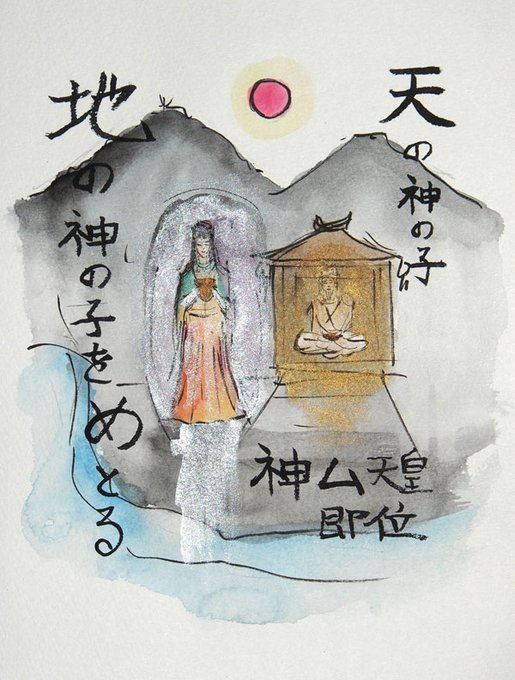 天の神の子
地の神の子をめとる
神ム天皇
即位